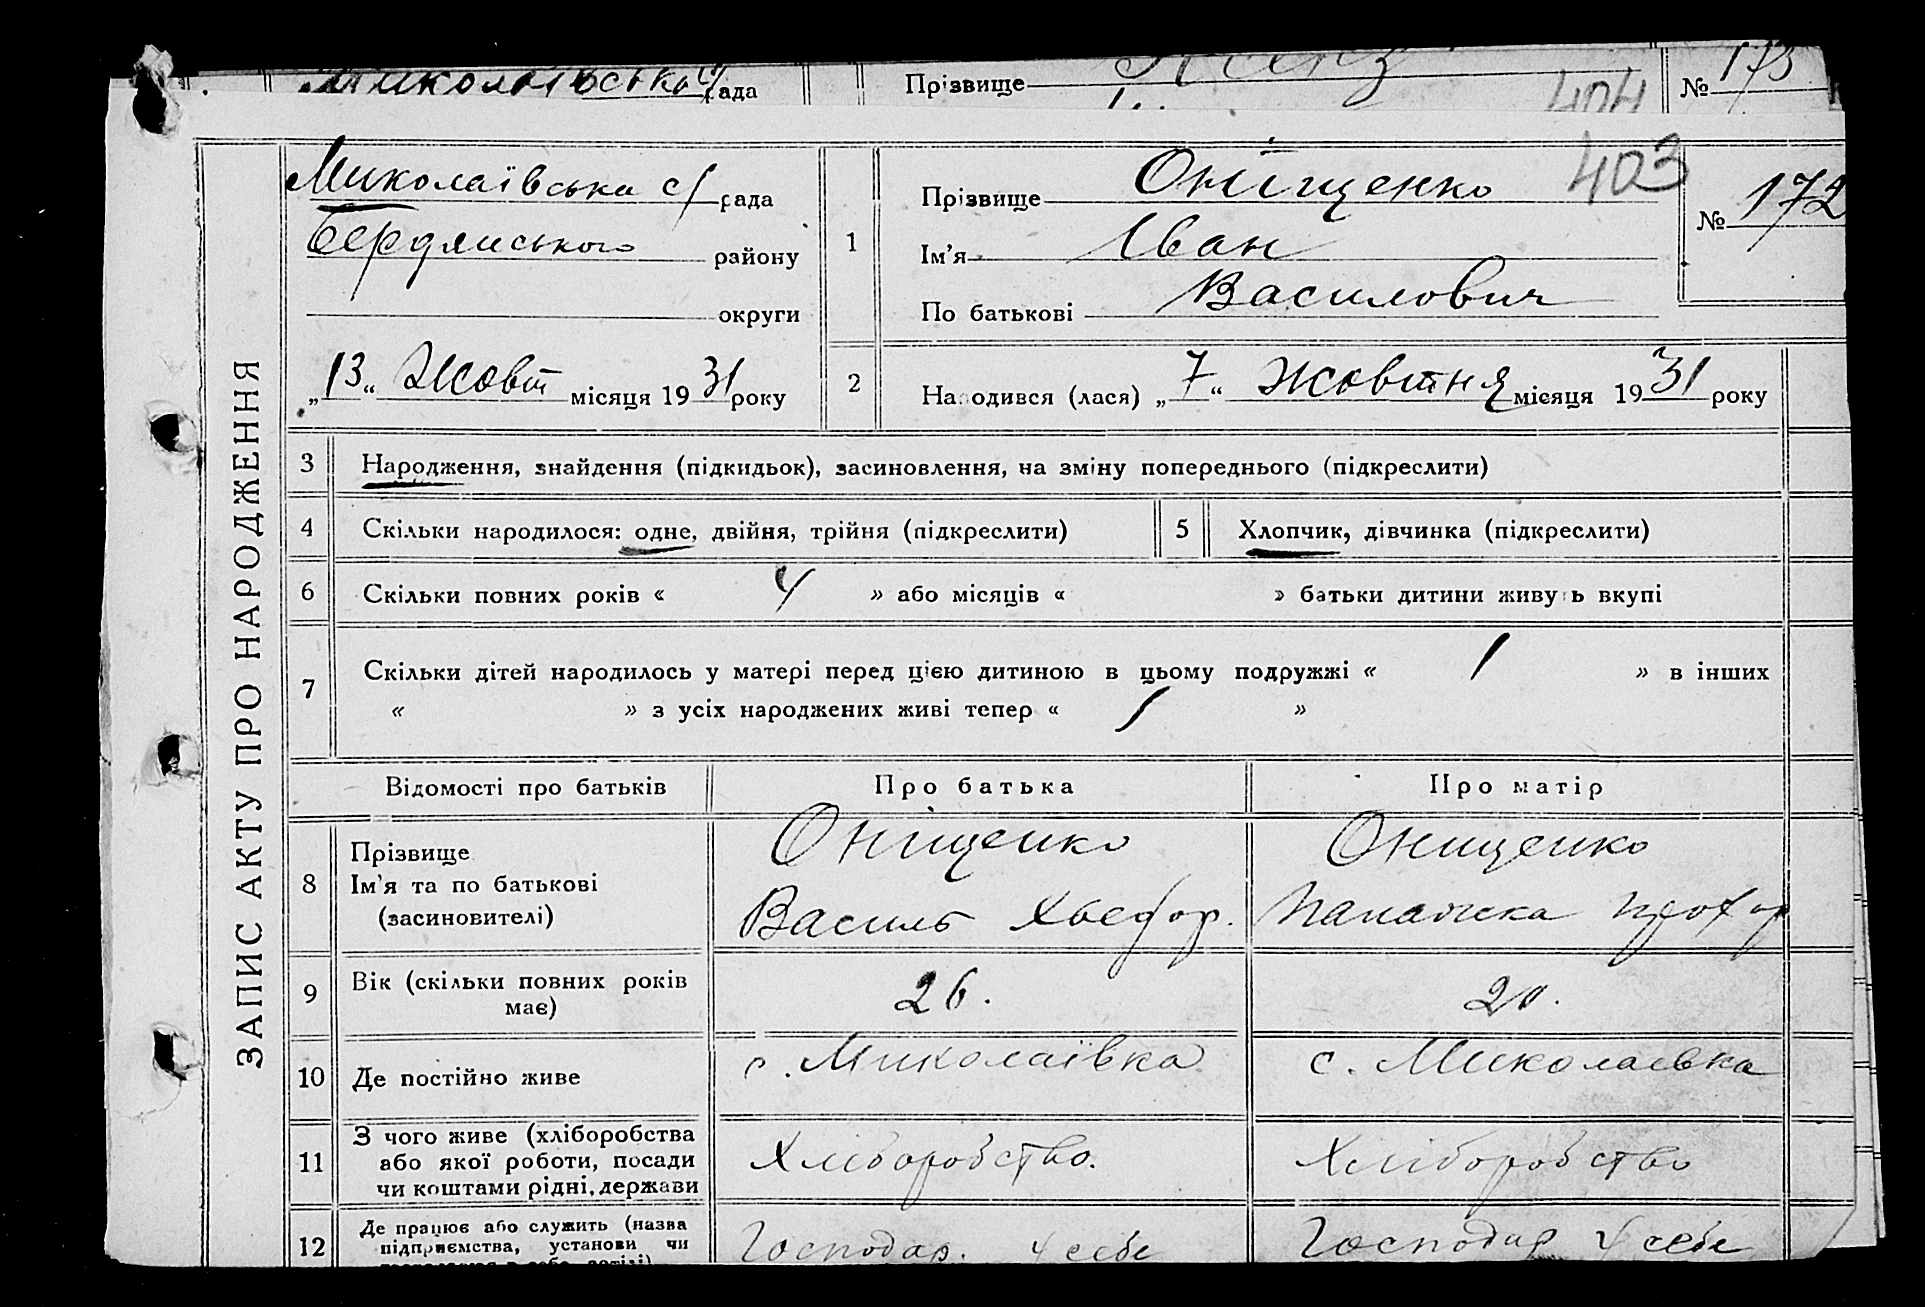 Миколаївська с/рада
Прізвище
404
№ 173
ЗАПИС АКТУ ПРО НАРОДЖЕННЯ
Миколаївська с/рада
Бердянського району
округи
„13“ Жовт місяця 1931 року
1
Прізвище Оніщенко
403
№ 172
Ім'я Іван
По батькові Василович
2
Народився (лася) „7“ Жовтня місяця 1931 року
3 Народження, знайдення (підкидьок), засиновлення, на зміну попереднього (підкреслити)
4 Скільки народилося: одне, двійня, трійня (підкреслити)
5 Хлопчик, дівчинка (підкреслити)
6 Скільки повних років « 4 » або місяців « » батьки дитини живуть вкупі
7 Скільки дітей народилось у матері перед цією дитиною в цьому подружжі « 1 » в інших
« » з усіх народжених живі тепер « 1 »
Відомості про батьків Про батька Про матір
8
Прізвище
Ім'я та по батькові
(засиновителі)
Оніщенко
Василь Хведор.
Онищенко
Палажка Прохор
9
Вік (скільки повних років
має)
26.
20.
10 Де постійно живе с. Миколаївка с. Миколаевка
11
З чого живе (хліборобства
або якої роботи, посади
чи коштами рідні, держави
Хліборобство.
Хліборобство
12
Де працює або служить (назва
підприємства, установи чи
Господар. у себе
Господар у себе